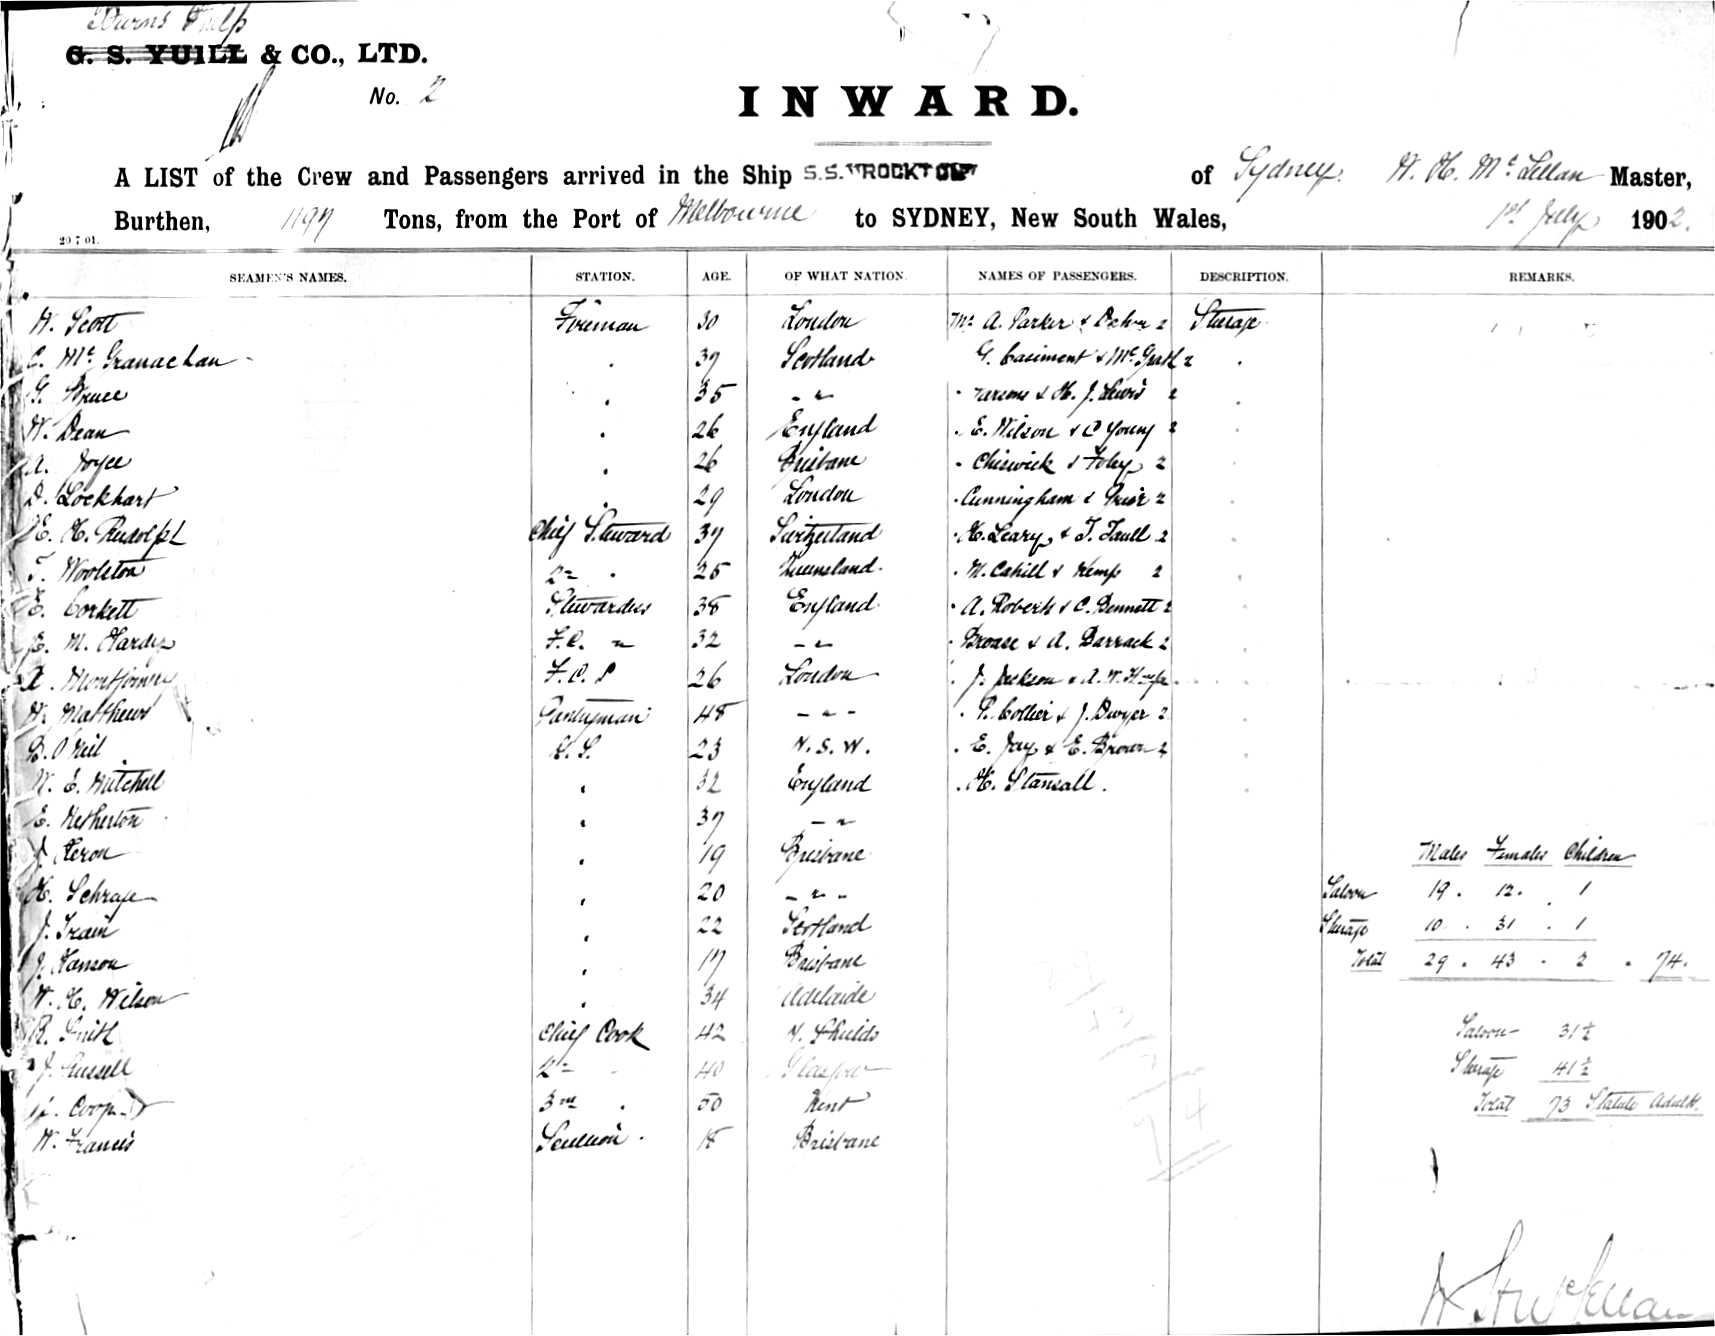 Burns Philp
G. S. YUILL & CO., LTD.
No. 2
INWARD.
A LIST of the Crew and Passengers arrived in the Ship S.S. of Sydney. W. H. McLellan Master,
Burthen, 1197 Tons, from the Port of Melbourne to SYDNEY, New South Wales, 1st July 1902.
20 7 01.
SEAMEN'S NAMES. STATION. AGE. OF WHAT NATION. NAMES OF PASSENGERS. DESCRIPTION. REMARKS.
W. Scott Fireman 30 London A. Parker & 2 Steerage
C. McGranachan " 37 Scotland G. Casiment & McGrath 2 "
G. Bruce " 35 " " Parsons & H. J. Lewis 2 "
W. Dean " 26 England " E. Wilson & C Young 2 "
A. Joyce " 26 Brisbane " Chiswick & Foley 2 "
D. Lockhart " 29 London " Cunningham & 2 "
E. H. Rudolph Chief Steward 37 Switzerland " H. Leary & T. Faull 2 "
T. Woolston 2nd " 25 Queensland " M. Cahill & Kemp 2 "
E. Corkett Stewardess 38 England " A. Roberts & C. Bennett 2 "
E. M. Hardy F.C. " 32 " " & A. Barrack 2 "
A. Montgomery F.C.P 26 London " J. Jackson & A. W. "
W. Matthews Pantryman 48 " " P. Collier & J. Dwyer 2 "
B. O'Neil 23 N. S. W. " E. Jay & E. Brown 2 "
W. E. Mitchell " 32 England " H. Stansall. "
E. Hetherton " 37 " "
J. Heron " 19 Brisbane Males Females Children
H. Schrage " 20 " " Saloon 19 . 12 . 1
J. Train " 22 Scotland Steerage 10 . 31 . 1
J. Hanson " 17 Brisbane Total 29 . 43 . 2 . 74.
W. H. Wilson " 34 Adelaide
R. Smith Chief Cook 42 N. Shields Saloon 31½
J. Russell 2nd " 40 Glasgow Steerage 41½
Cooper 3rd " 50 Kent Total 73 Statute Adults.
W. Francis 18 Brisbane
74
W H McLellan